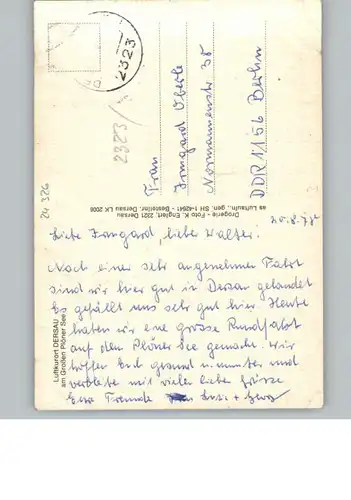 2323
2323
Frau
Irmgard Oberle
Normannenstr 35
DDR 1156 Berlin
Drogerie - Foto K. Englert, 2321 Dersau
as Luftaufn., gen. SH 1-42641 - Bestellnr. Dersau LK 2006
24 326
Luftkurort DERSAU
am Großen Plöner See
20.8.78
Liebe Irmgard, lieber Walter!
Nach einer sehr angenehmen Fahrt
sind wir hier gut in Dersau gelandet
Es gefällt uns sehr gut hier. Heute
haben wir eine grosse Rundfahrt
auf dem Plöner See gemacht. Wir
hoffen Euch gesund u. munter und
verbleibe mit vielen lieben Grüsse
Eure Freunde